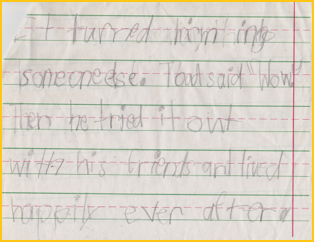 It turned him into
someone else. Toad said "Wow"
Then he tried it out
with his friends and lived
happily ever after.